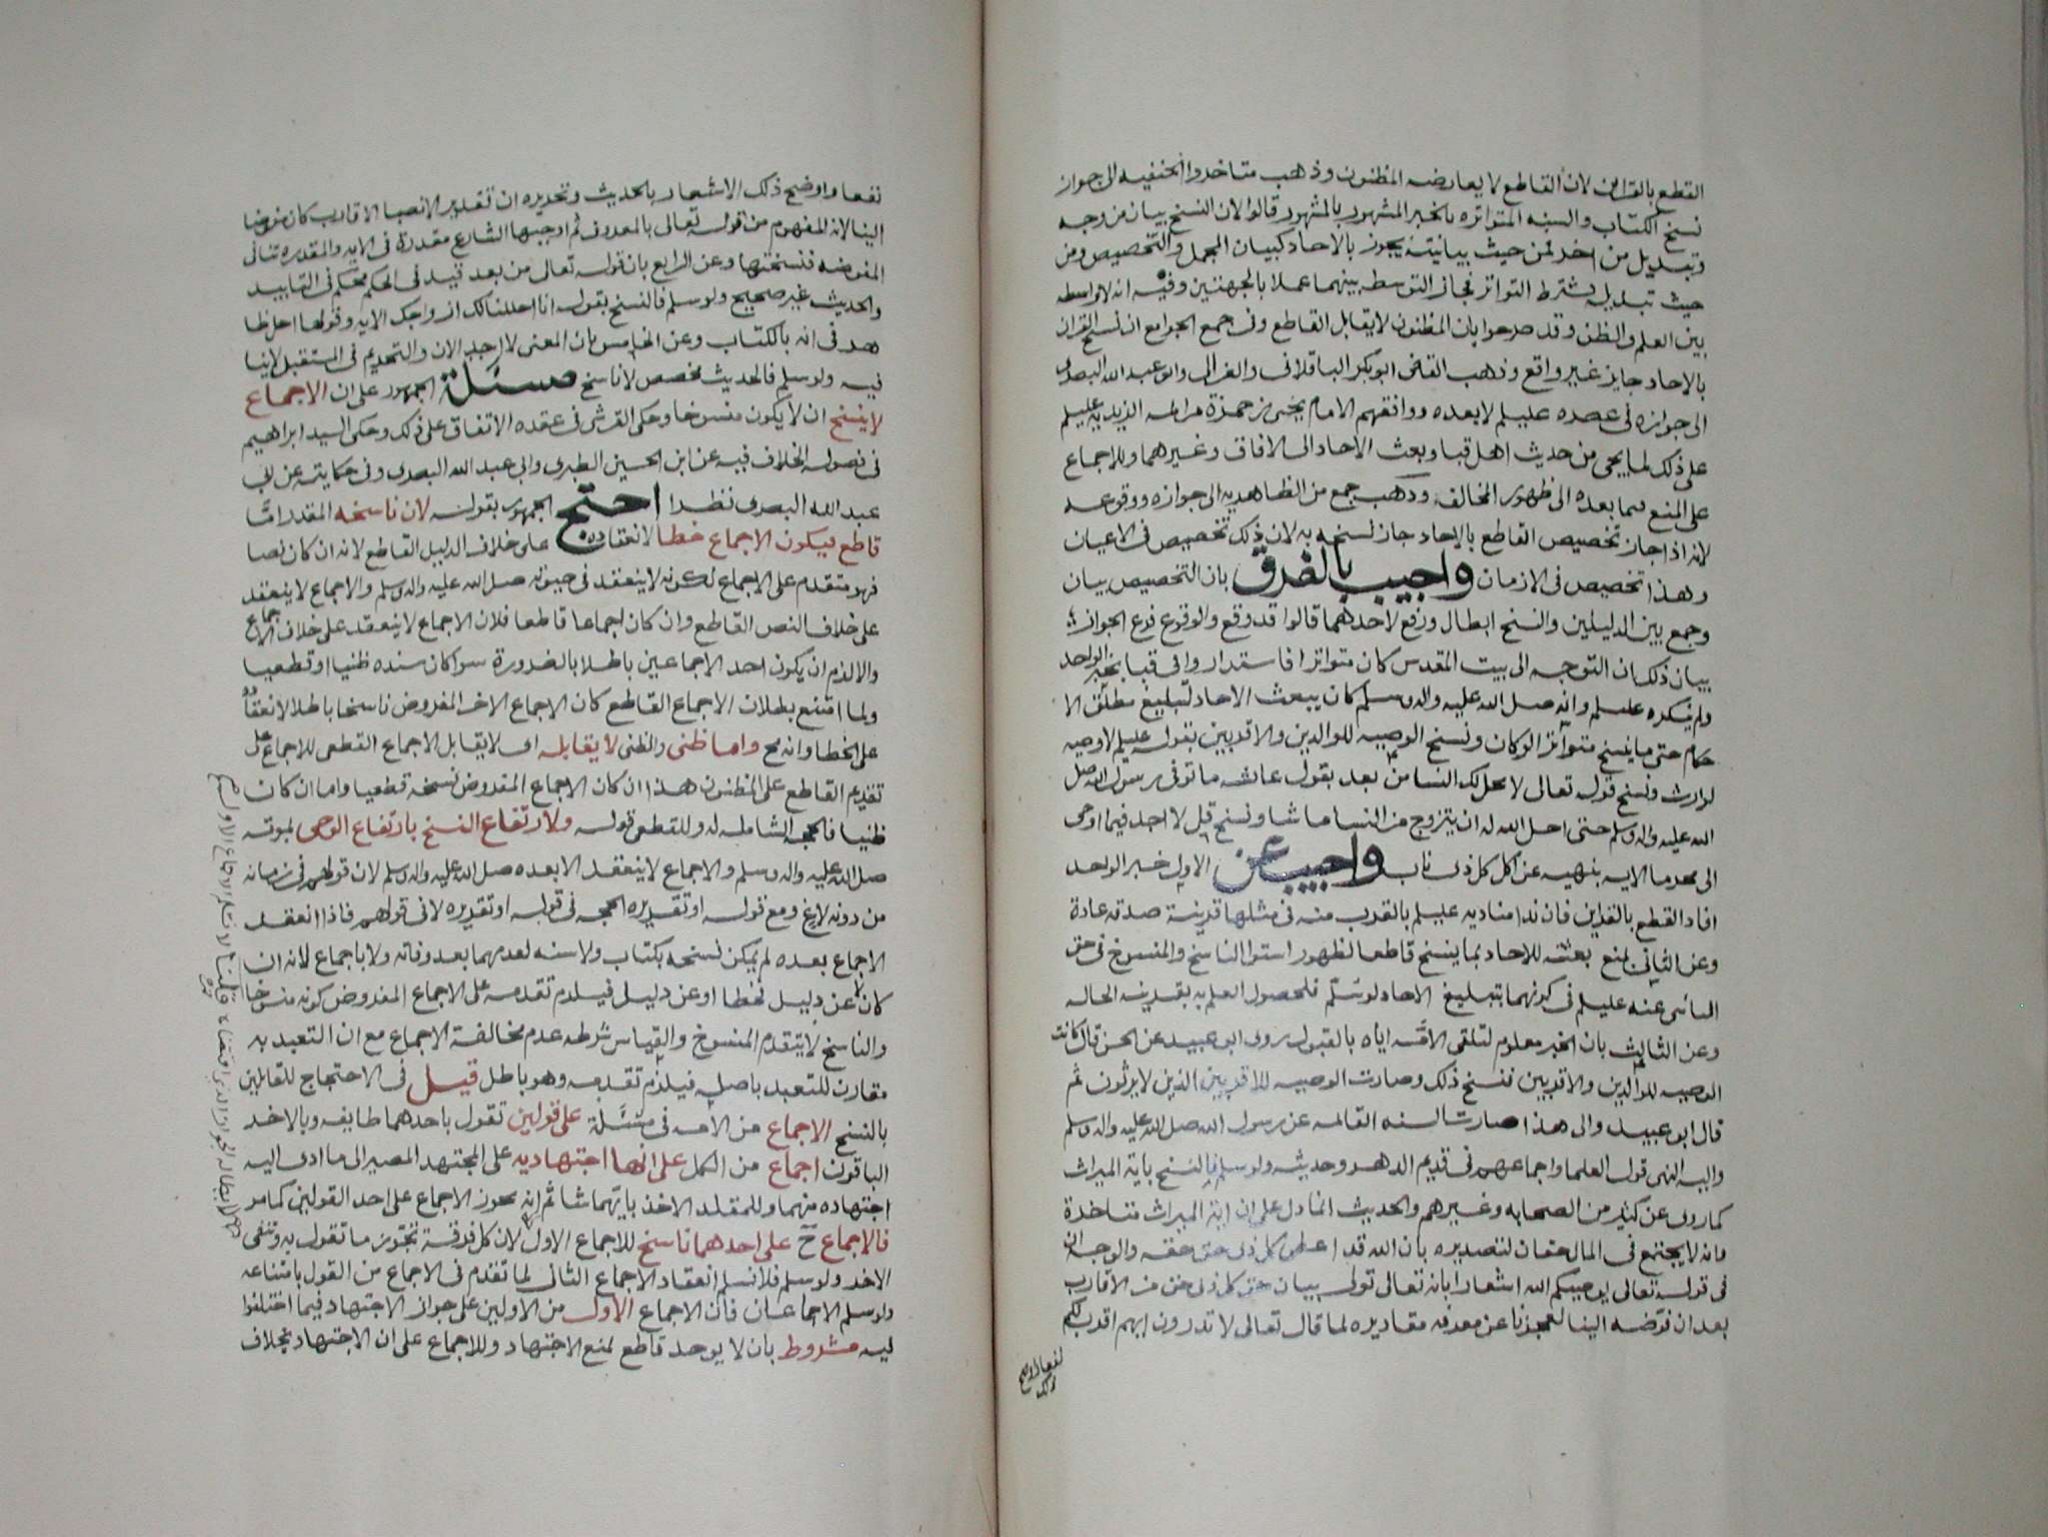 القطع بالقراين لان القاطع لا يعارضه المظنون وذهب متاخروا الحنفيه الى جواز
نسخ الكتاب والسنه المتواتره بالخبر المشهور بالمشهور قالوا لان النسخ بيان من وجه
وتبديل من اخر فمن حيث بيانيته يجوز بالاحاد كبيان المجمل والتخصيص ومن
حيث تبديله يشترط التواتر فجاز التوسط بينهما عملا بالجهتين وفيه انه لا واسطه
بين العلم والظن وقد صرحوا بان المظنون لا يقابل القاطع وفي جمع الجوامع ان نسخ القران
بالاحاد جايز غير واقع وذهب القاضي ابو بكر الباقلاني والغزالي وابو عبد الله البصري
الى جوازه في عصره عليلم لا بعده ووافقهم الامام يحيى بن حمزة من ايمة الزيديه عليلم
على ذلك لما يجي من حديث اهل قبا وبعث الاحاد الى الافاق وغيرهما وللاجماع
على المنع مما بعده الى ظهور المخالف وذهب جمع من الظاهريه الى جوازه ووقوعه
لانه اذا جاز تخصيص القاطع بالاحاد جاز نسخه به لان ذلك تخصيص في الاعيان
وهذا تخصيص في الازمان واجيب بالفرق بان التخصيص بيان
وجمع بين الدليلين والنسخ ابطال ورفع لاحدهما قالوا قد وقع والوقوع فرع الجواز
بيان ذلك ان التوجه الى بيت المقدس كان متواترا فاستداروا في قبا بخبر الواحد
ولم ينكره عليلم وانه صلى الله عليه واله وسلم كان يبعث الاحاد لتبليغ مطلق الا
حكام حتى ما ينسخ متواترا لو كان ونسخ الوصيه للوالدين والاقربين بقوله عليلم لا وصيه
لوارث ونسخ قوله تعالى لا يحل لك النسا من بعد بقول عائشه ما توفي رسول الله صلى
الله عليه واله وسلم حتى احل الله له ان يتزوج من النسا ما شا ونسخ قل لا اجد فيما اوحي
الى محرما الايه بنهيه عن اكل كل ذي ناب واجيب عن الاول خبر الواحد
افاد القطع بالقراين فان ندا مناديه عليلم بالقرب منه في مثلها قرينة صدقه عادة
وعن الثاني بمنع بعثه للاحاد بما ينسخ قاطعا لظهور استوا الناسخ والمنسوخ في حق
الناس عنه عليلم في كونهما بتبليغ الاحاد لو سلم فلحصول العلم به بقرينه الحاله
وعن الثالث بان الخبر معلوم لتلقي الامه اياه بالقبول روى ابو عبيد عن الحسن قال كانت
الوصيه للوالدين والاقربين فنسخ ذلك وصارت الوصيه للاقربين الذين لا يرثون ثم
قال ابو عبيد والى هذا صارت السنه القائمه عن رسول الله صلى الله عليه واله وسلم
واليه انتهى قول العلما واجماعهم في قديم الدهر وحديثه ولو سلم فالنسخ باية الميراث
كما روى عن كثير من الصحابه وغيرهم والحديث انما دل على ان اية الميراث متاخرة
وانه لا يجتمع في المال حقان لتصديره بان الله قد اعطى كل ذي حق حقه والوجه ان
في قوله تعالى يوصيكم الله اشعارا بانه تعالى تولى بيان حق كل ذي حق من الاقارب
بعد ان فوضه الينا لعجزنا عن معرفة مقاديره لما قال تعالى لا تدرون ايهم اقرب لكم
نفعا واوضح ذلك
نفعا واوضح ذلك الاشعار بالحديث وتحريره ان تقدير الانصبا الاقارب كان مفوضا
الينا لانه المفهوم من قوله تعالى بالمعروف ثم اوجبها الشارع مقدرة في الايه والمقدره تنافي
المفوضه فنسختها وعن الرابع بان قوله تعالى من بعد قيد في الحكم محكم في التابيد
والحديث غير صحيح ولو سلم فالنسخ بقوله انا احللنا لك ازواجك الايه وقولها احل
في انه بالكتاب وعن الخامس بان المعنى لا اجد الان والتحريم في المستقبل لا ينا
فيه ولو سلم فالحديث مخصص لا ناسخ مسئلة الجمهور على ان الاجماع
لا ينسخ ان لا يكون منسوخا وحكى القرشي في عقده الاتفاق على ذلك وحكى السيد ابراهيم
في فصوله الخلاف فيه عن ابن الحسين الطبري وابي عبد الله البصري وفي حكايته عن ابي
عبد الله البصري نظر احتج الجمهور بقوله لان ناسخه المقدر اما
قاطع فيكون الاجماع خطا لانعقاده على خلاف الدليل القاطع لانه ان كان نصا
فهو متقدم على الاجماع لكونه لا ينعقد في حيوته صلى الله عليه واله وسلم والاجماع لا ينعقد
على خلاف النص القاطع وان كان اجماعا قاطعا فلان الاجماع لا ينعقد على خلاف الاجماع
والا لزم ان يكون احد الاجماعين باطلا بالضرورة سوا كان سنده ظنيا او قطعيا
ولما امتنع بطلان الاجماع القاطع كان الاجماع الاخر المفروض ناسخا باطلا لانعقاده
على الخطا وانه مح واما ظني والظني لا يقابله اي لا يقابل الاجماع القطعي للاجماع على
تقديم القاطع على المظنون هذا ان كان الاجماع المفروض نسخه قطعيا واما ان كان
ظنيا فالحجه الشامله له وللقطعي قوله ولارتفاع النسخ بارتفاع الوحي بموته
صلى الله عليه واله وسلم والاجماع لا ينعقد الا بعده صلى الله عليه واله وسلم لان قولهم في زمانه
من دونه لاغ ومع قوله او تقريره الحجه في قوله او تقريره لا في قولهم فاذا انعقد
الاجماع بعده لم يمكن نسخه بكتاب ولا سنه لعدمهما بعد وفاته ولا باجماع لانه ان
كان لا عن دليل فخطا او عن دليل فيلزم تقدمه على الاجماع المفروض كونه منسوخا
والناسخ لا يتقدم المنسوخ والقياس شرطه عدم مخالفة الاجماع مع ان التعبد به
مقارن للتعبد باصله فيلزم تقدمه وهو باطل قيل في الاحتجاج للقايلين
بالنسخ الاجماع من الامه في مسئلة على قولين تقول باحدهما طايفه وبالاخر
الباقون اجماع من الكل على انها اجتهاديه على المجتهد المصير الى ما ادى اليه
اجتهاده منهما وللمقلد الاخذ بايهما شا ثم انه يجوز الاجماع على احد القولين كما مر
فالاجماع ح على احدهما ناسخ للاجماع الاول لان كل فرقة تجوز ما تقول به وتنفي
الاخر ولو سلم فلا نسلم انعقاد الاجماع الثاني لما تقدم في الاجماع من القول بامتناعه
ولو سلم الاجماعان فان الاجماع الاول من الاولين على جواز الاجتهاد فيما اختلفوا
فيه مشروط بان لا يوجد قاطع لمنع الاجتهاد وللاجماع على ان الاجتهاد بخلاف